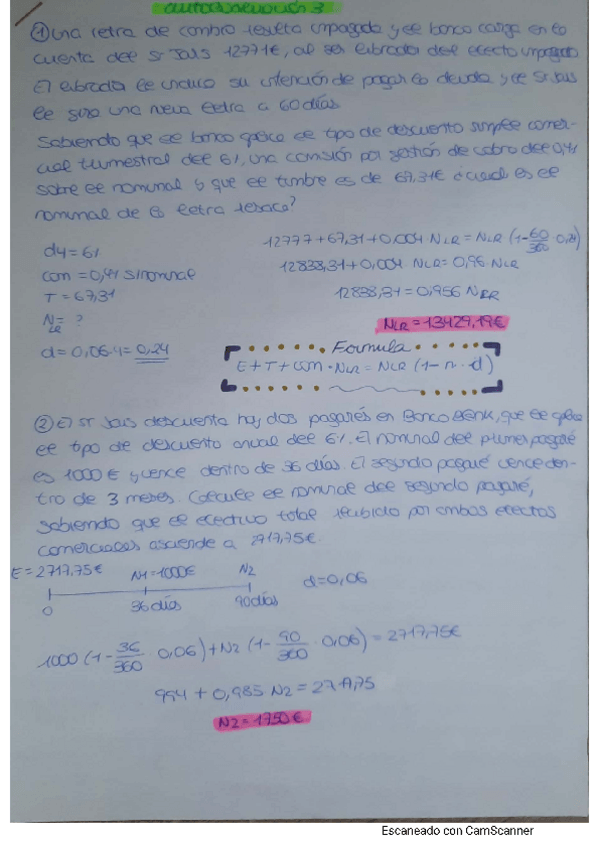 autoevaluación 3
① Una letra de cambio resulta impagada y el banco carga en la
cuenta del Sr Jais 12771€, al ser librador del efecto impagado
El librado le indica su intención de pagar la deuda y el Sr Jais
le gira una nueva letra a 60 días.
Sabiendo que el banco aplica el tipo de descuento simple comer-
cial trimestral del 6%, una comisión por gestión de cobro del 0,4%
sobre el nominal y que el timbre es de 67,31€ ¿cuál es el
nominal de la letra resaca?
d4 = 6%
com = 0,4% s/nominal
T = 67,31
N LR = ?
d = 0,06·4 = 0,24
12777 + 67,31 + 0,004 NLR = NLR (1 - 60/360 · 0,24)
12838,31 + 0,004 NLR = 0,96 · NLR
12838,31 = 0,956 NLR
NLR = 13429,19€
Formula
E + T + com · NLR = NLR (1 - n · d)
② El Sr Jais descuenta hoy dos pagarés en Banco Bank, que le aplica
el tipo de descuento anual del 6%. El nominal del primer pagaré
es 1000€ y vence dentro de 36 días. El segundo pagaré vence den-
tro de 3 meses. Calcule el nominal del segundo pagaré,
sabiendo que el efectivo total recibido por ambos efectos
comerciales asciende a 2717,75€.
E = 2717,75€ N1 = 1000€ N2
d = 0,06
0 36 días 90 días
1000 (1 - 36/360 · 0,06) + N2 (1 - 90/360 · 0,06) = 2717,75€
994 + 0,985 N2 = 2717,75
N2 = 1750€
Escaneado con CamScanner